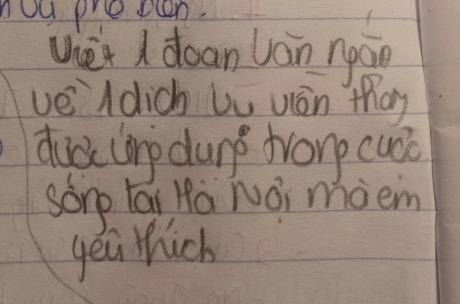 và phổ biến.
Viết 1 đoạn văn ngắn
về 1 dịch vụ viễn thông
được ứng dụng trong cuộc
sống tại Hà Nội mà em
yêu thích